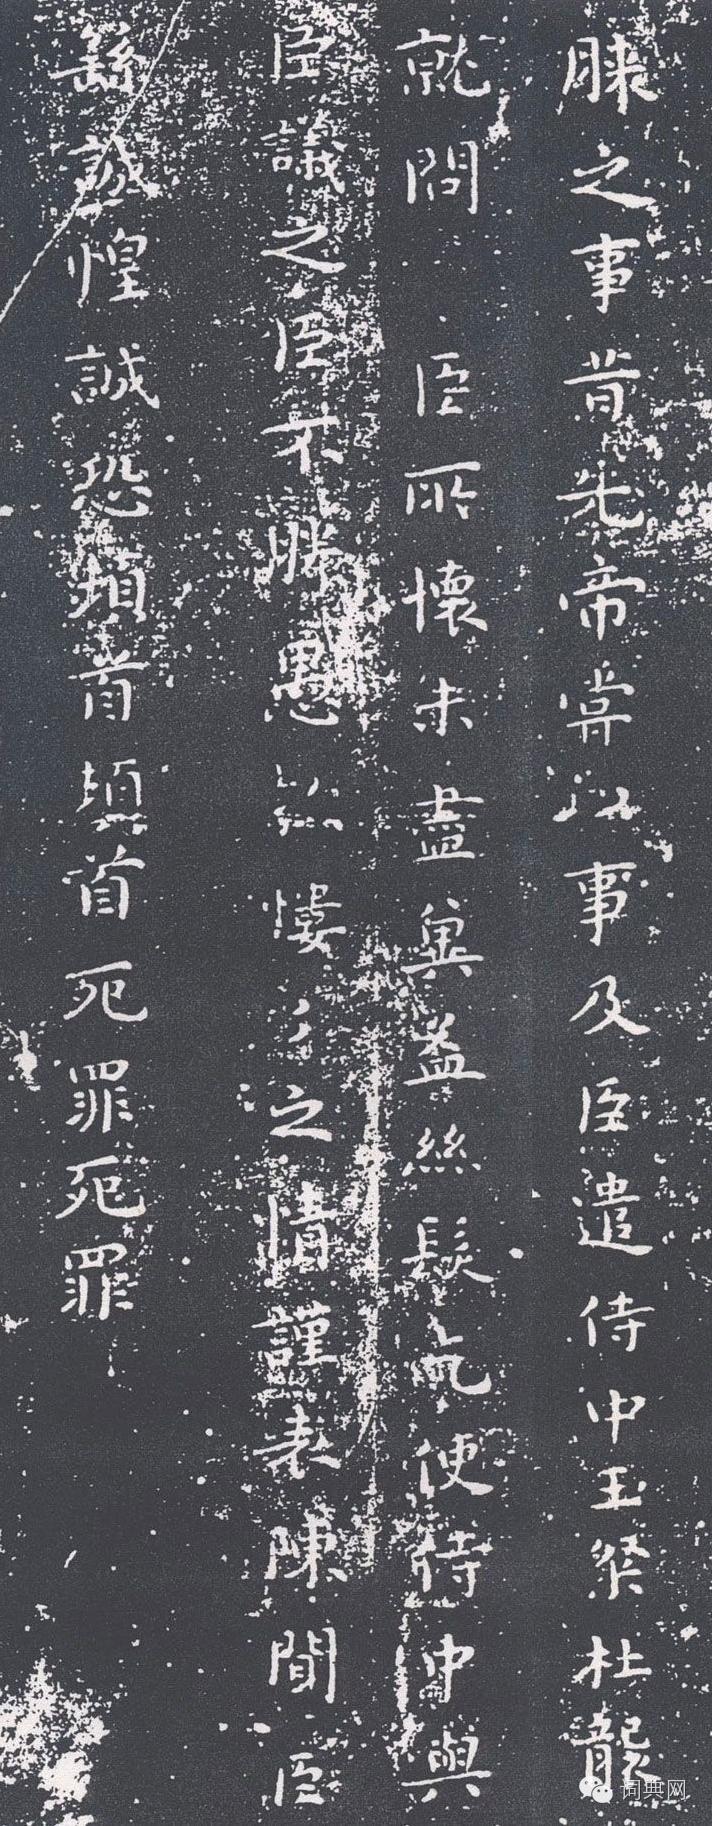 疎之事昔先帝常以事及臣遣侍中王粲杜襲
就問臣所懷未盡冀益絲髮氣使侍中與
臣議之臣不勝愚以慺慺之情謹表陳聞臣
繇誠惶誠恐頓首頓首死罪死罪
词典网